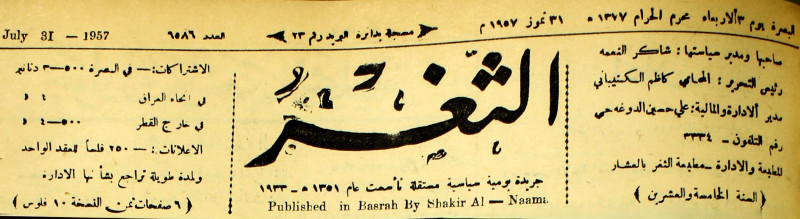 البصرة يوم ٣ الاربعاء محرم الحرام ١٣٧٧ ه ٣١ تموز ١٩٥٧ م
مسجلة بدائرة البريد رقم ٢٣
العدد ٦٥٨٦
July 31 — 1957
صاحبها ومدير سياستها : شاكر النعمه
رئيس التحرير : المحامي كاظم الكتيباني
مدير الادارة والمالية : علي حسين الدوغه جي
رقم التلفون — ٣٣٣٤
المطبعة والادارة — مطبعة الثغر بالعشار
( السنة الخامسة والعشرين )
الثغر
جريدة يومية سياسية مستقلة تأسست عام ١٣٥١ ه — ١٩٣٣
Published in Basrah By Shakir Al — Naama.
الاشتراكات : — في البصرة ٥٠٠ — ٣ دنانير
في انحاء العراق ٤ »
في خارج القطر ٥٠٠ — ٤ »
الاعلانات : — ٢٥٠ فلساً للعقد الواحد
ولمدة طويلة تراجع بشأنها الادارة
( ٦ صفحات ثمن النسخة ١٠ فلوس )